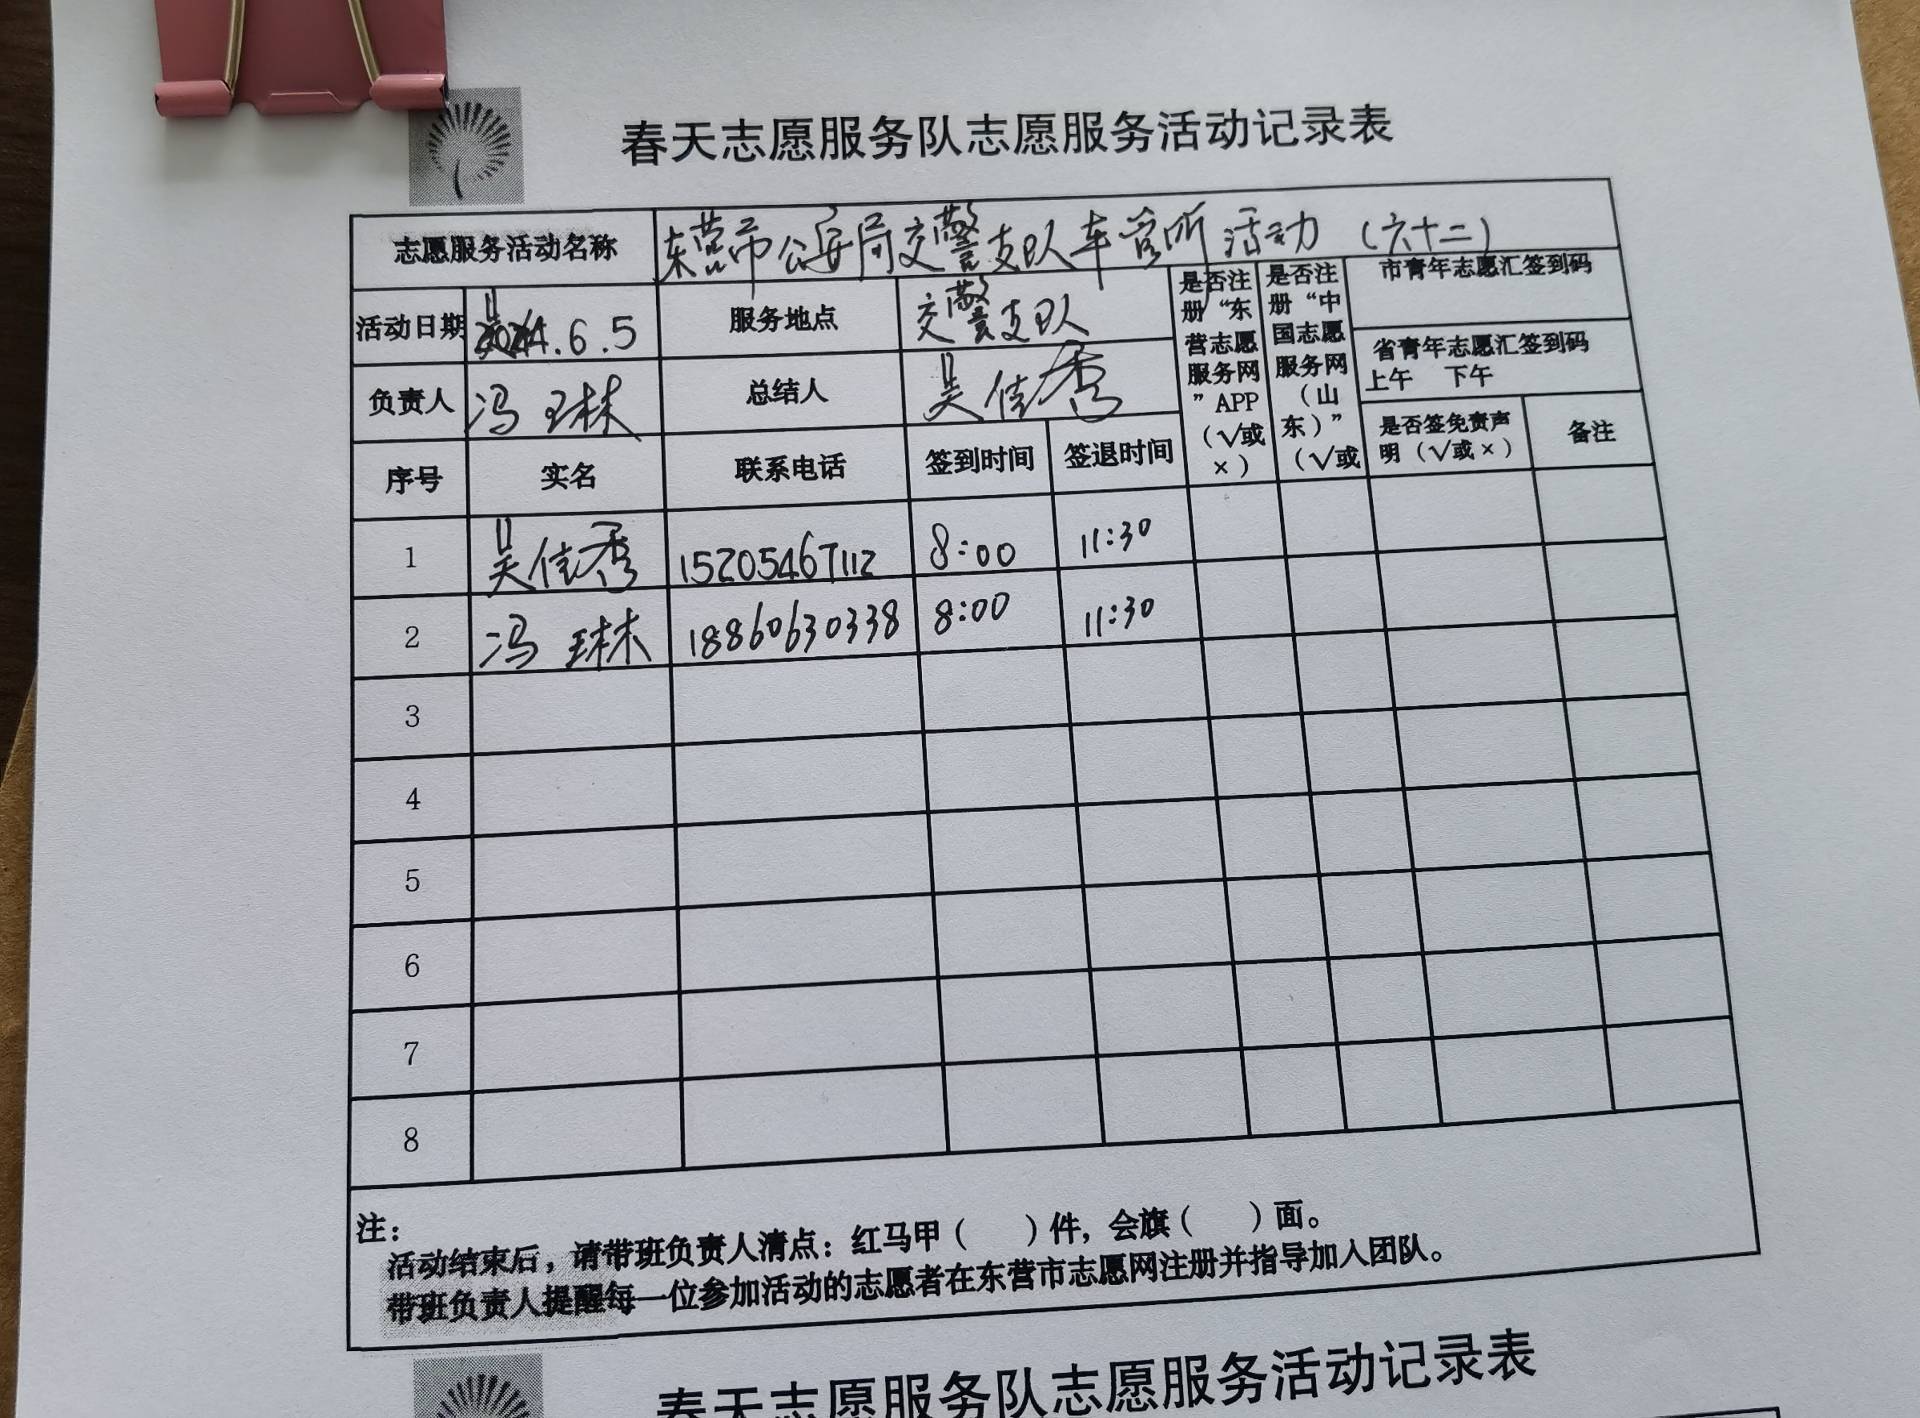 春天志愿服务队志愿服务活动记录表
志愿服务活动名称 东营市公安局交警支队车管所活动（六十二）
活动日期 2024.6.5 服务地点 交警支队
负责人 冯琳 总结人 吴佳秀
是否注册“东营志愿服务网”APP（√或×）
是否注册“中国志愿服务网（山东）”（√或
市青年志愿汇签到码
省青年志愿汇签到码
上午 下午
序号 实名 联系电话 签到时间 签退时间 是否签免责声明（√或×） 备注
1 吴佳秀 15205467112 8:00 11:30
2 冯琳 18860630338 8:00 11:30
3
4
5
6
7
8
注：
活动结束后，请带班负责人清点：红马甲（ ）件，会旗（ ）面。
带班负责人提醒每一位参加活动的志愿者在东营市志愿网注册并指导加入团队。
春天志愿服务队志愿服务活动记录表